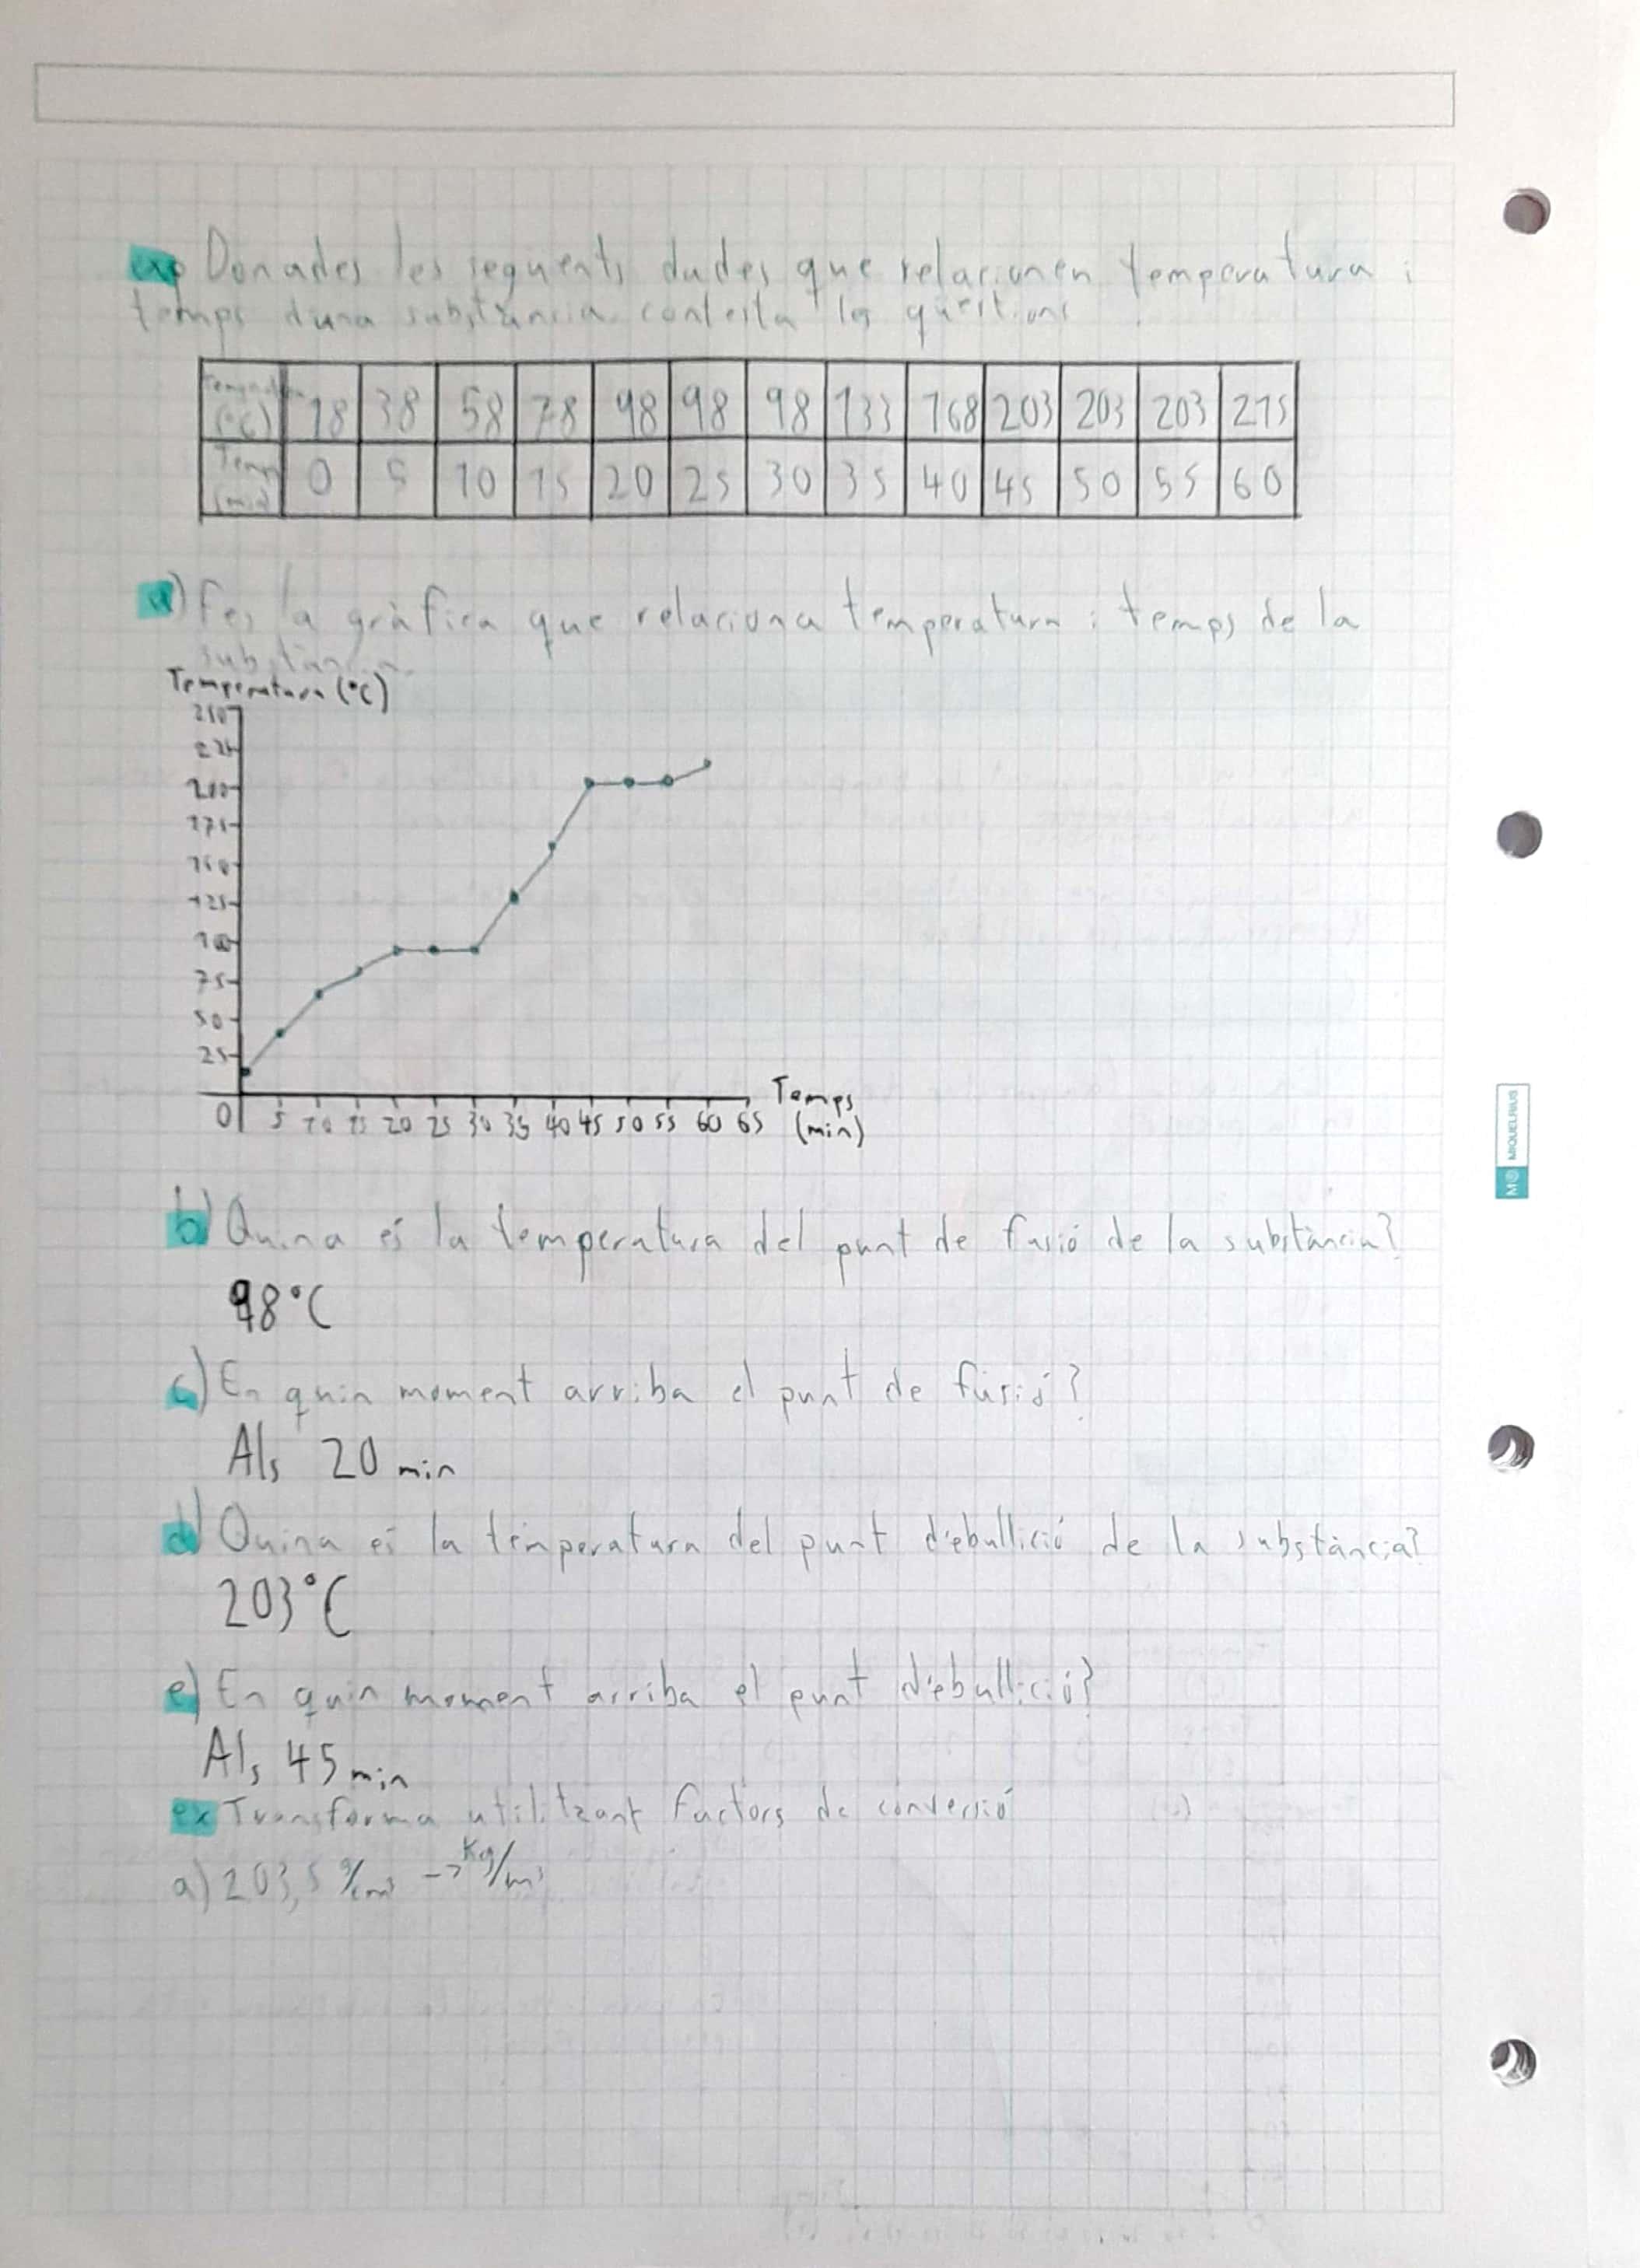 exp Donades les seguents dades que relacionen temperatura i
temps d'una substància contesta les qüestions
Temperatura (°C) 18 38 58 78 98 98 98 133 168 203 203 203 215
Temps (min) 0 5 10 15 20 25 30 35 40 45 50 55 60
a) Fes la gràfica que relaciona temperatura i temps de la
substància.
Temperatura (°C)
250
225
200
175
150
125
100
75
50
25
0 5 10 15 20 25 30 35 40 45 50 55 60 65
Temps
(min)
b) Quina és la temperatura del punt de fusió de la substància?
98°C
c) En quin moment arriba el punt de fusió?
Als 20 min
d) Quina és la temperatura del punt d'ebullició de la substància?
203°C
e) En quin moment arriba el punt d'ebullició?
Als 45 min
ex Transforma utilitzant factors de conversió
a) 203,5 g/cm³ -> Kg/m³
MIQUELRIUS